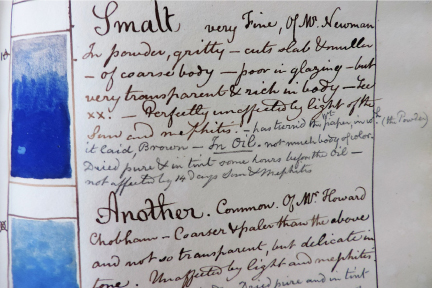 Smalt very Fine, Of Mr. Newman
In powder, gritty – cuts slab & muller
– of coarse body – poor in glazing – but
very transparent & rich in body – See
xx: – Perfectly unaffected by light of the
Sun and mephitis. – has tern'd the paper, in wh. (the Powder)
it laid, Brown – In Oil. not much body of color.
Dried pure & in tint some hours before the Oil –
not affected by 14 Days Sun & Mephitis
Another. Common. Of Mr. Howard
Chobham – Coarser & paler than the above
and not so transparent, but delicate in
tone. Unaffected by light and mephites
Dried pure and in tint